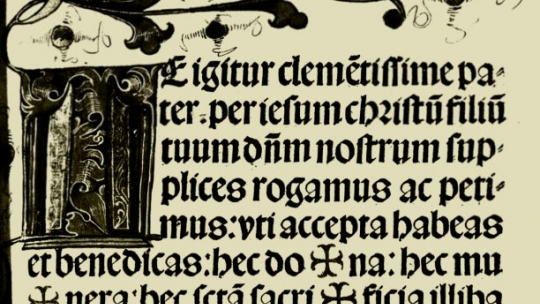 TE igitur clemẽtiſſime pa-
ter. per ieſum chriſtũ filiũ
tuum dñm noſtrum ſup-
plices rogamus ac peti-
mus: vti accepta habeas
et benedicas: hec do ✠ na: hec mu
✠ nera: hec ſctã ſacri ✠ ficia illiba